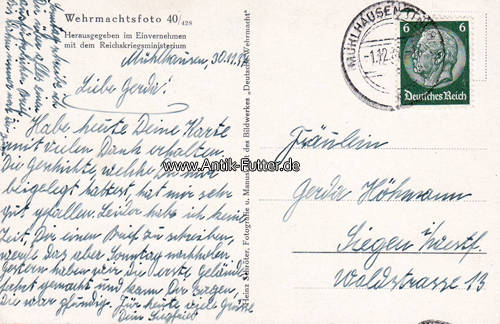 Wehrmachtsfoto 40/428
Herausgegeben im Einvernehmen
mit dem Reichskriegsministerium
Mühlhausen, 30.11.
Liebe Gerda!
Habe heute Deine Karte
mit vielen Dank erhalten.
Die Geschichte, welche Du mir
beigelegt hattest, hat mir sehr
gut gefallen. Leider habe ich keine
Zeit, Dir einen Brief zu schreiben,
werde das aber Sonntag nachholen.
Gestern haben wir die erste Gelände
fahrt gemacht und kann Dir sagen,
Die war pfundig. Für heute viele Grüße
Dein Siegfried
Heinz Schröter, Fotografie u. Manuskript des Bildwerkes „Deutsche Wehrmacht"
MÜHLHAUSEN
-1.12.
6 6
Deutsches Reich
Fräulein
Gerda Höhmann
Siegen i/Westf.
Waldstrasse 13
www.Antik-Futter.de